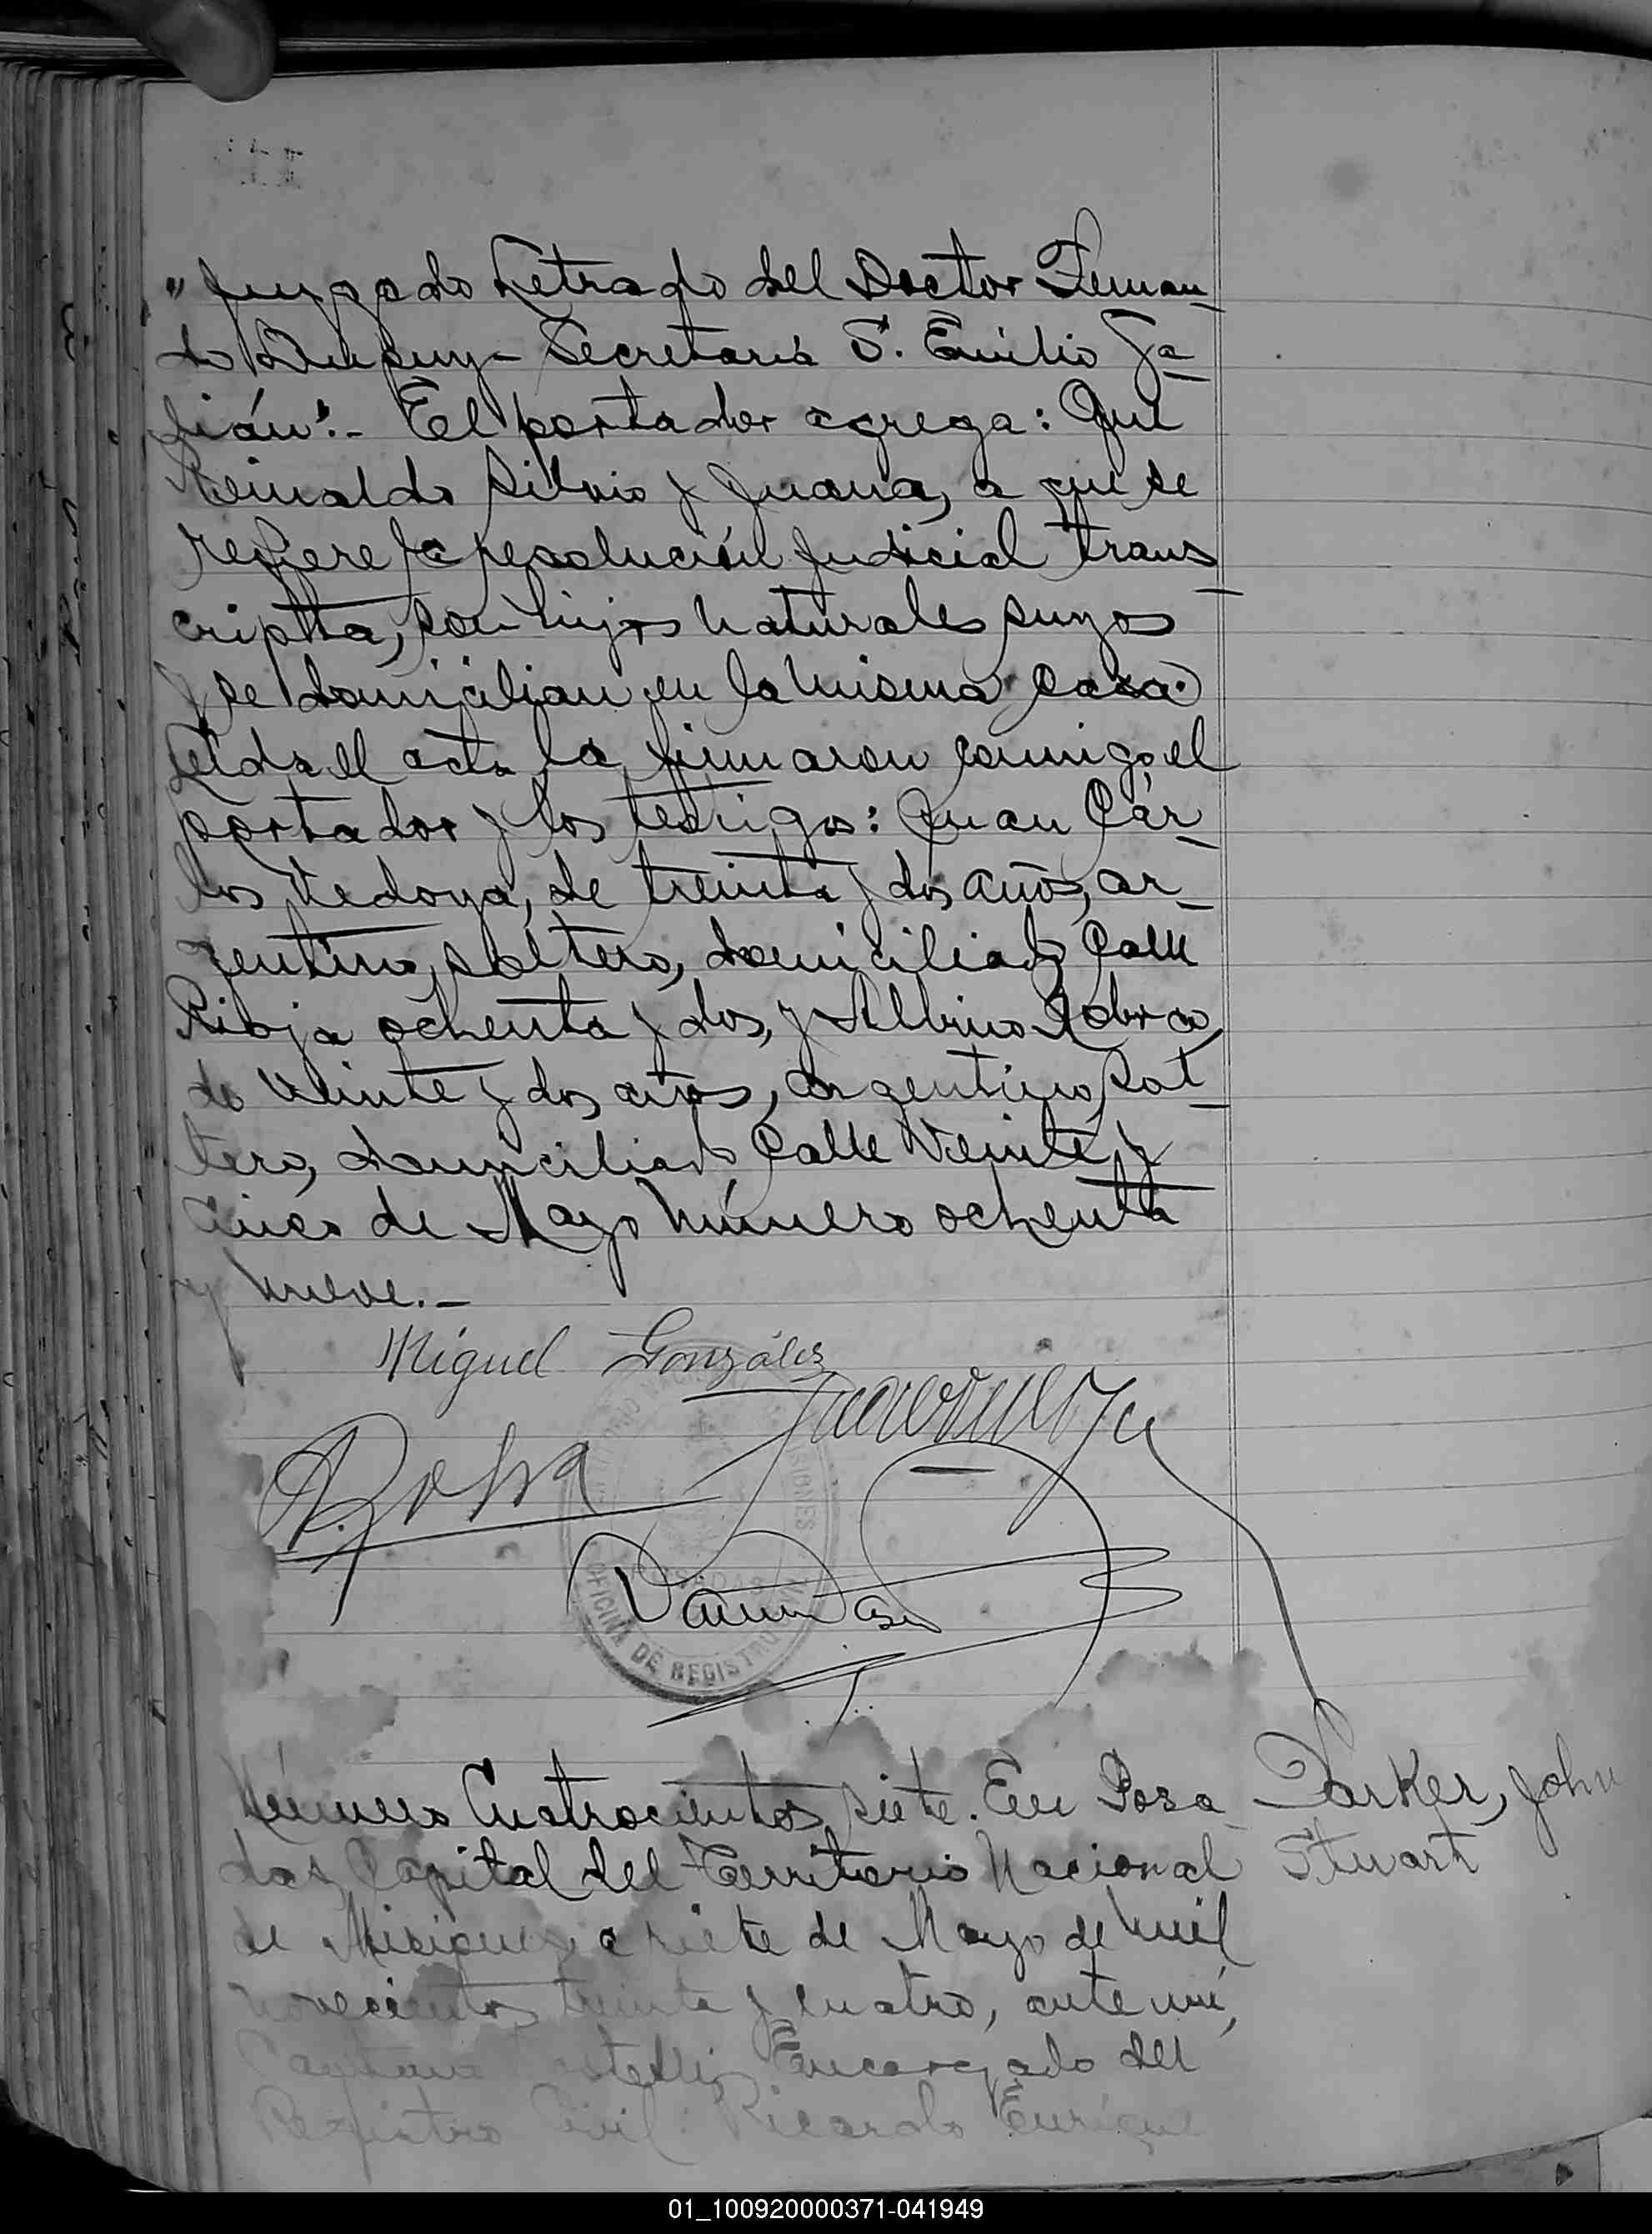 " Juzgado Letrado del Doctor Fernan-
do Dupuy - Secretaría S. Emilio Ga-
lián". - El portador agrega: Que
Reinaldo Silvio y Juana, a que se
refiere la resolución judicial trans-
cripta, son hijos naturales suyos
y se domicilian en la misma casa.
Leida el acta la firmaron conmigo el
portador y los testigos: Juan Cár-
los Vedoya, de treinta y dos años, ar-
gentino, soltero, domiciliado Calle
Rioja ochenta y dos, y Albino
de veinte y dos años, argentino, sol-
tero, domiciliado Calle Veinte y
cinco de Mayo número ochenta
y nueve. -
Miguel González
OFICINA DE REGISTRO
Número Cuatrocientos siete. En Posa-
Parker, John
das, Capital del Territorio Nacional
Stuart
de Misiones, a siete de Mayo de mil
novecientos treinta y cuatro, ante mí,
Encargado del
Registro Civil: Ricardo Enrique
01_100920000371-041949